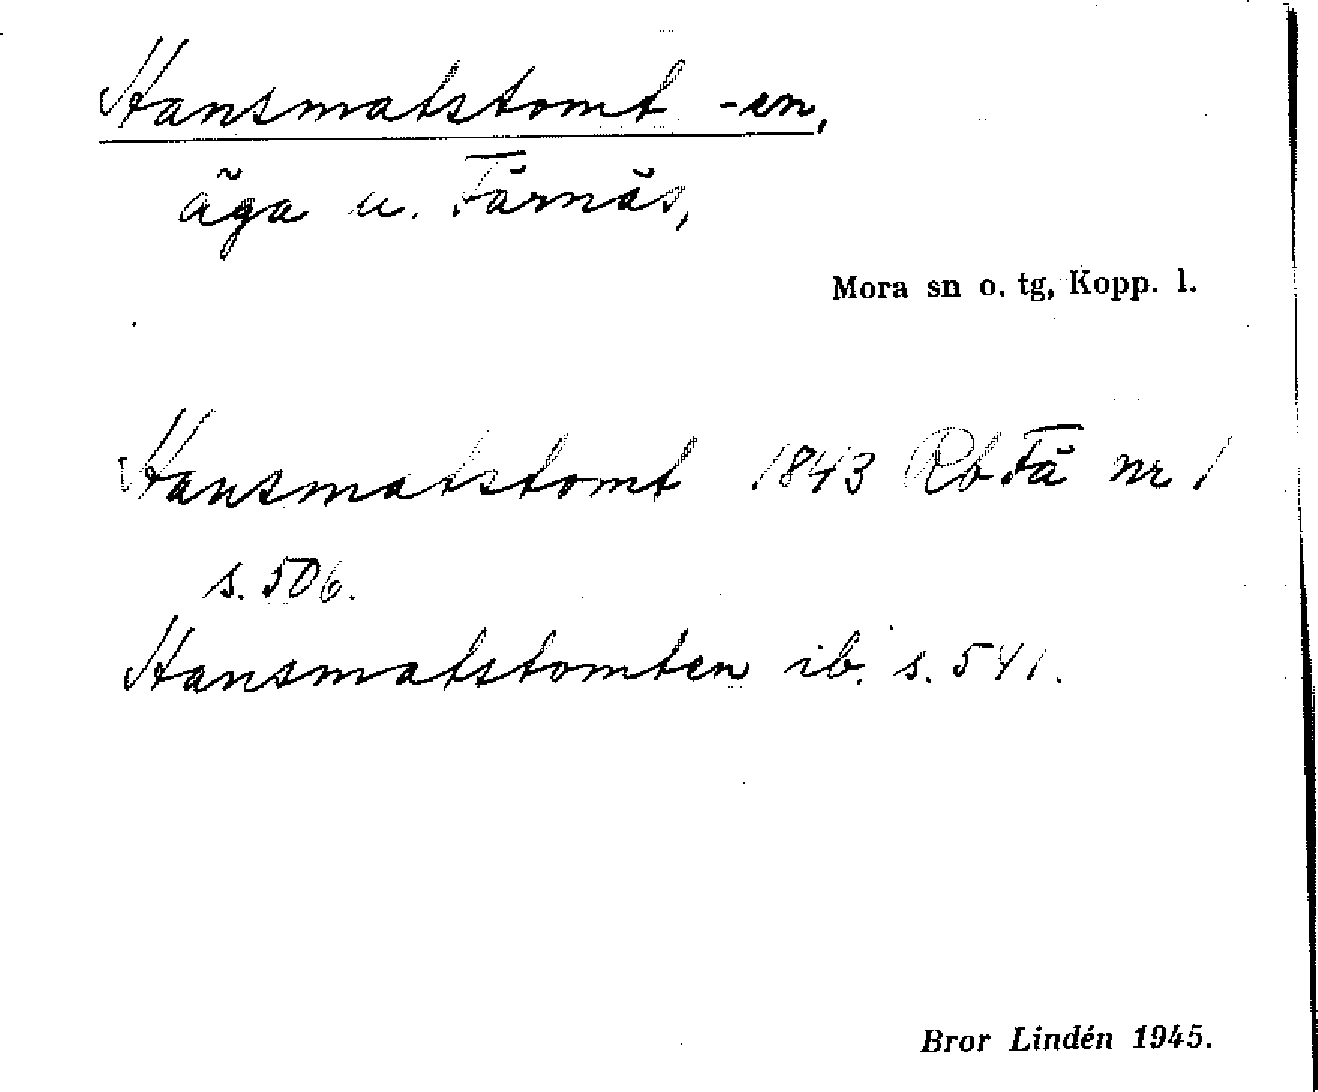 Hansmatstomt -en,
äga u. Färnäs,
Mora sn o. tg, Kopp. l.
Hansmatstomt 1843 Rb Fä nr 1
s. 506.
Hansmatstomten ib. s. 541.
Bror Lindén 1945.